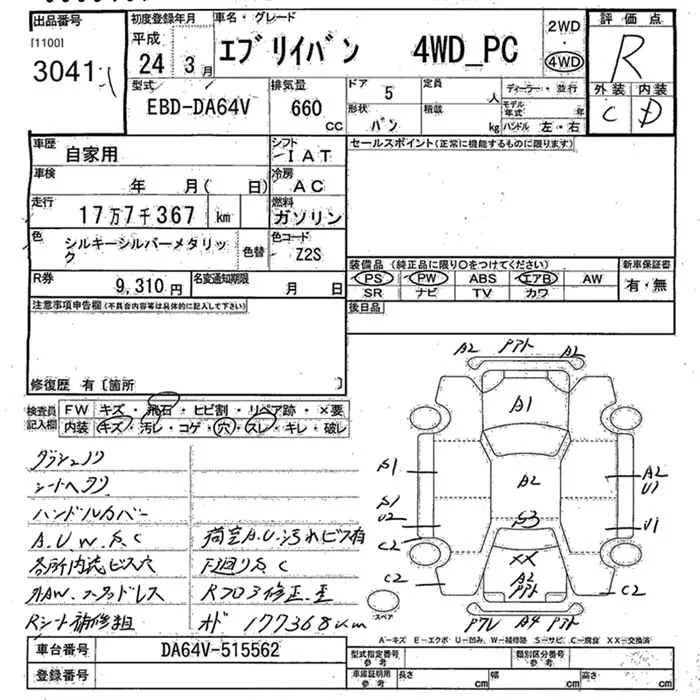 出品番号
[1100]
3041
初度登録年月
平成
24 3月
車名・グレード
エブリイバン 4WD_PC
2WD
・
4WD
評価点
R
外装 内装
C D
型式
EBD-DA64V
排気量
660
CC
ドア 5
定員 人
形状 バン
積載 kg
ディーラー・並行
モデル年式 年
ハンドル 左・右
車歴 自家用
シフト IAT
セールスポイント(正常に機能するものに限ります)
車検 年 月( 日)
冷房 AC
走行 17万7千367 km
燃料 ガソリン
色 シルキーシルバーメタリック
色替
色コード Z2S
装備品 (純正品に限り○をつけてください)
新車保証書
PS PW ABS エアB AW
SR ナビ TV カワ
有・無
R券 9,310円
名変通知期限 月 日
後日品
注意事項申告欄(不具合内容等は具体的に記入して下さい)
修復歴 有〔箇所 〕
検査員記入欄
FW キズ・飛石・ヒビ割・リペア跡・×要
内装 キズ・汚レ・コゲ・穴・スレ・キレ・破レ
シートヘタリ
ハンドルカバー
A.U.W.S.C
荷室A.U.汚れビス有
各所内張ビス穴
下廻りS.C
Rフロア修正.歪
Rシート補修組
オド 177368km
A2 Pアト A2
A1
A2
S1
S1
U2
C2
C2
A2
U1
U1
C2
S3
XX
A2
Pアト
A4 Pアト
スペア
A-キズ E-エクボ U-凹み、W-補修跡 S-サビ、C-腐食 XX-交換済
車台番号 DA64V-515562
登録番号
型式指定番号
参考
類別区分番号
参考
車庫証明用
参考
長さ cm 幅 cm 高さ cm